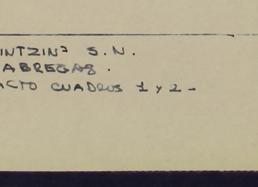 INTZINº S.N.
ABREGAS.
ACTO CUADROS 1 Y 2-